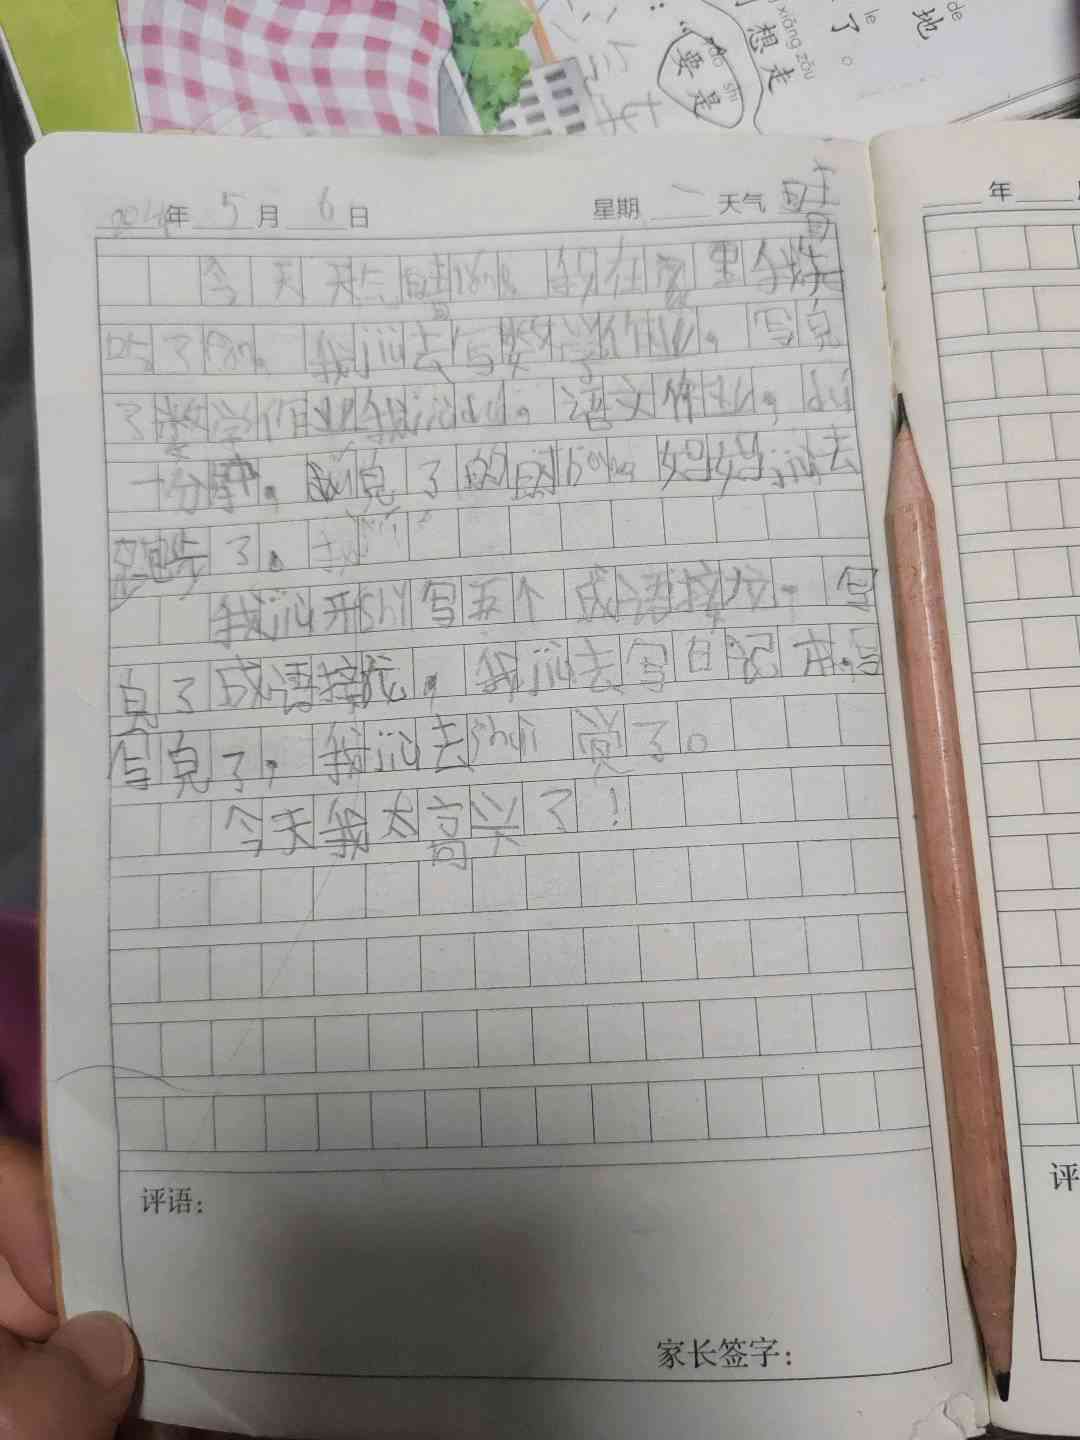 地 de
了 le 。
想走 xiǎng zǒu
要是 shì
年 5 月 6 日 星期 一 天气 晴
今天天气晴 我在家里
吃了 。我jiù去写数学作业。写完
了数学作业我jiù dú。语文作业，dú
十分钟。 完了的时 妈妈jiù去
跑步了。
我jiù开shǐ写五个成语接龙。写
完了成语接龙，我jiù去写日记本。写
写完了，我jiù去shuì觉了。
今天我太高兴了！
评语：
家长签字：
年
评